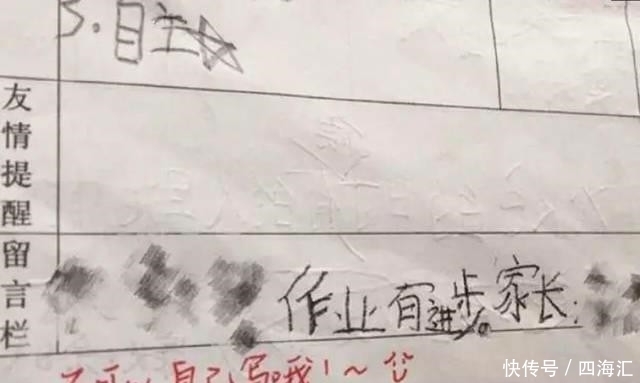 3.自主
友情提醒
留言栏
作业有进步。家长:
自己写哦!~
快传号/四海汇